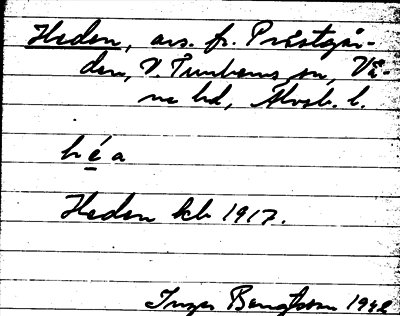 Heden, avs. fr. Prästgår-
den, V. Tunhems sn, Vä-
ne hd, Älvsb. l.
héa
Heden kb 1917.
Inger Bengtsson 1942